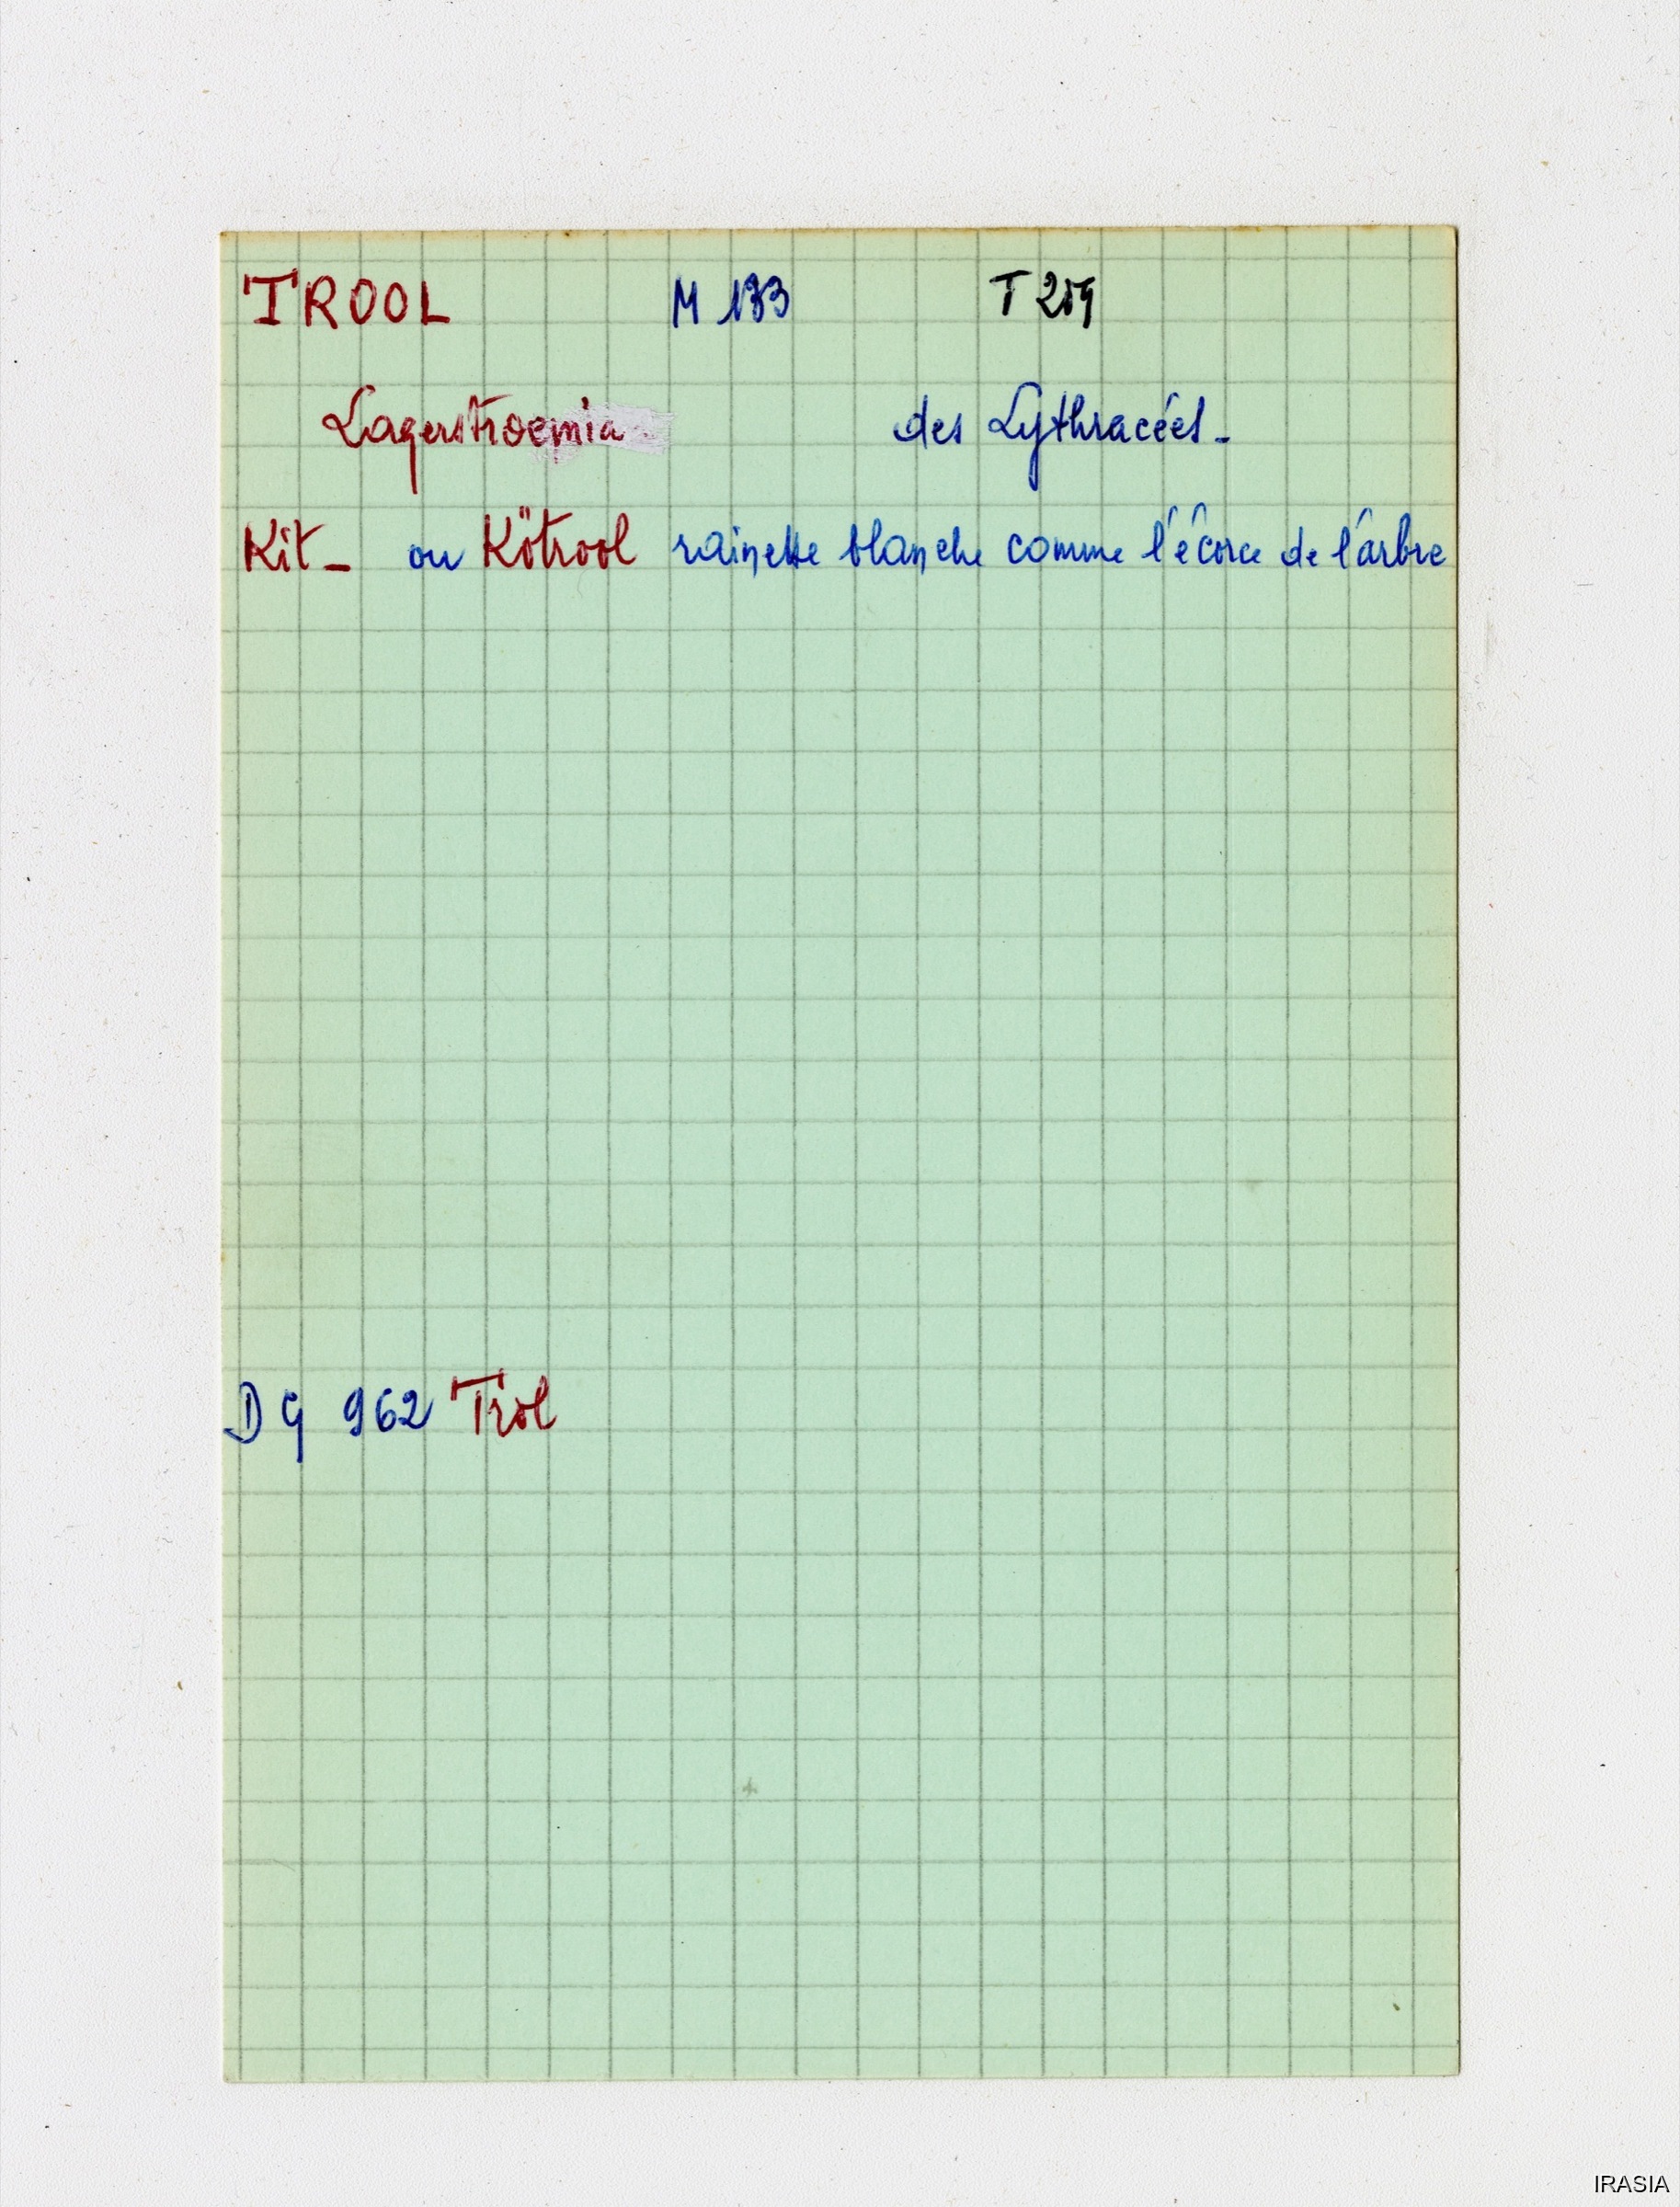 TROOL M 133 T 219
Lagerstroemia des Lythracées -
Kit - ou Kötrool rainette blanche comme l'écorce de l'arbre
DG 962 Tröl
IRASIA